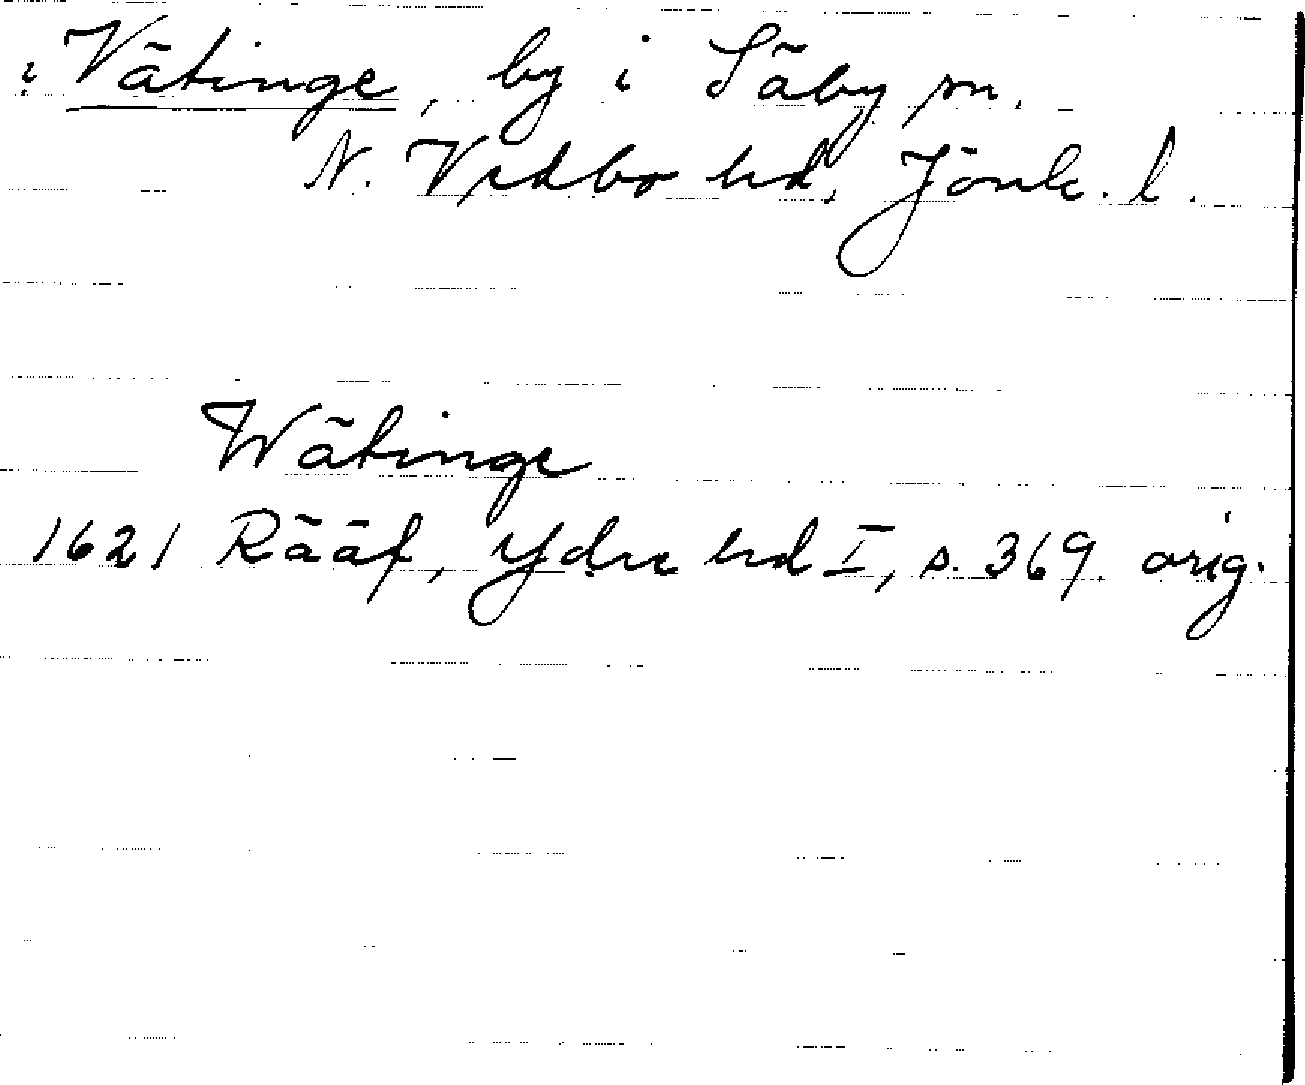 ¿ Vätinge, by i Säby sn.
N. Vedbo hd, Jönk. l.
Wätinge
1621 Rääf, Ydre hd I, s. 369. orig.